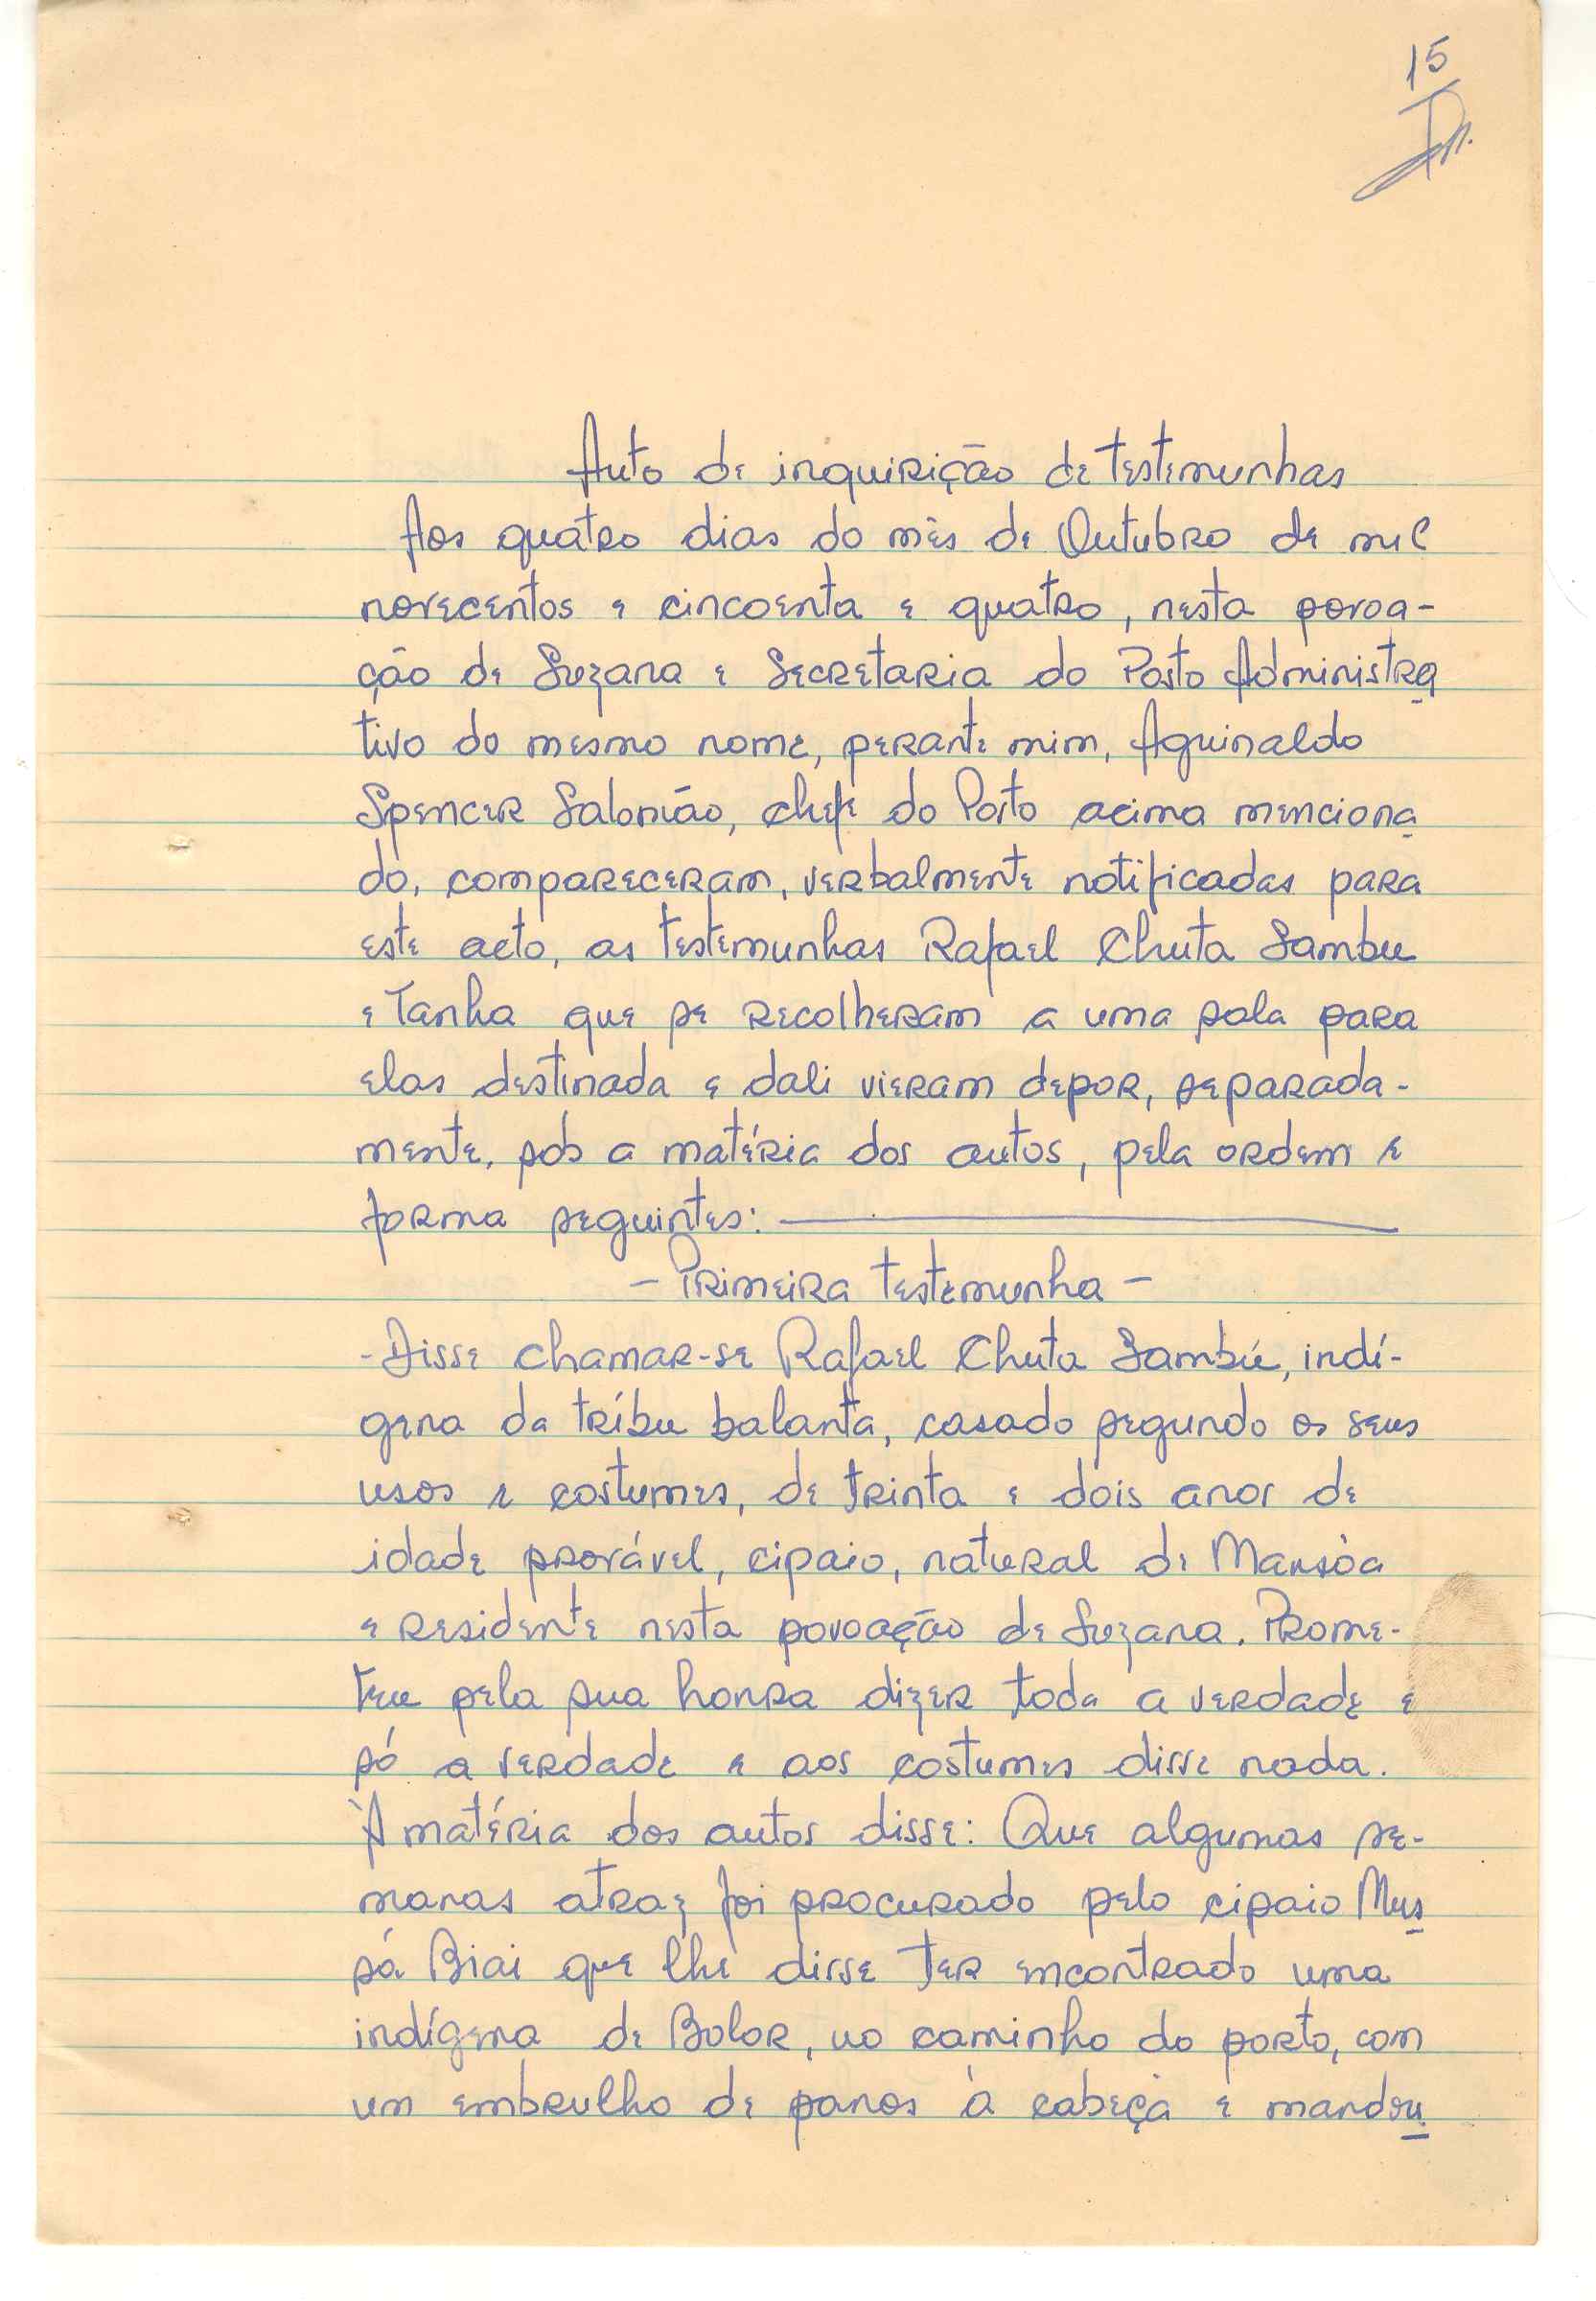 15
Auto de inquirição de testemunhas
Aos quatro dias do mês de Outubro de mil
novecentos e cincoenta e quatro, nesta povoa-
ção de Suzana e Secretaria do Posto Administra
tivo do mesmo nome, perante mim, Aguinaldo
Spencer Salomão, chefe do Posto acima menciona
do, compareceram, verbalmente notificadas para
este acto, as testemunhas Rafael Chuta Sambu
e Tanha que se recolheram a uma sala para
elas destinada e dali vieram depor, separada-
mente, sob a matéria dos autos, pela ordem e
forma seguintes:
- Primeira testemunha -
- Disse chamar-se Rafael Chuta Sambú, indí-
gena da tríbu balanta, casado segundo os seus
usos e costumes, de trinta e dois anos de
idade provável, cipaio, natural de Mansôa
e residente nesta povoação de Suzana. Prome-
teu pela sua honra dizer toda a verdade e
só a verdade e aos costumes disse nada.
À matéria dos autos disse: Que algumas se-
manas atraz foi procurado pelo cipaio Mus
sá Biai que lhe disse ter encontrado uma
indígena de Bolor, no caminho do porto, com
um embrulho de panos à cabeça e mandou